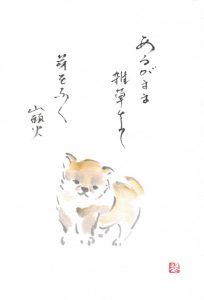 あるがまま
雑草として
芽をふく
山頭火